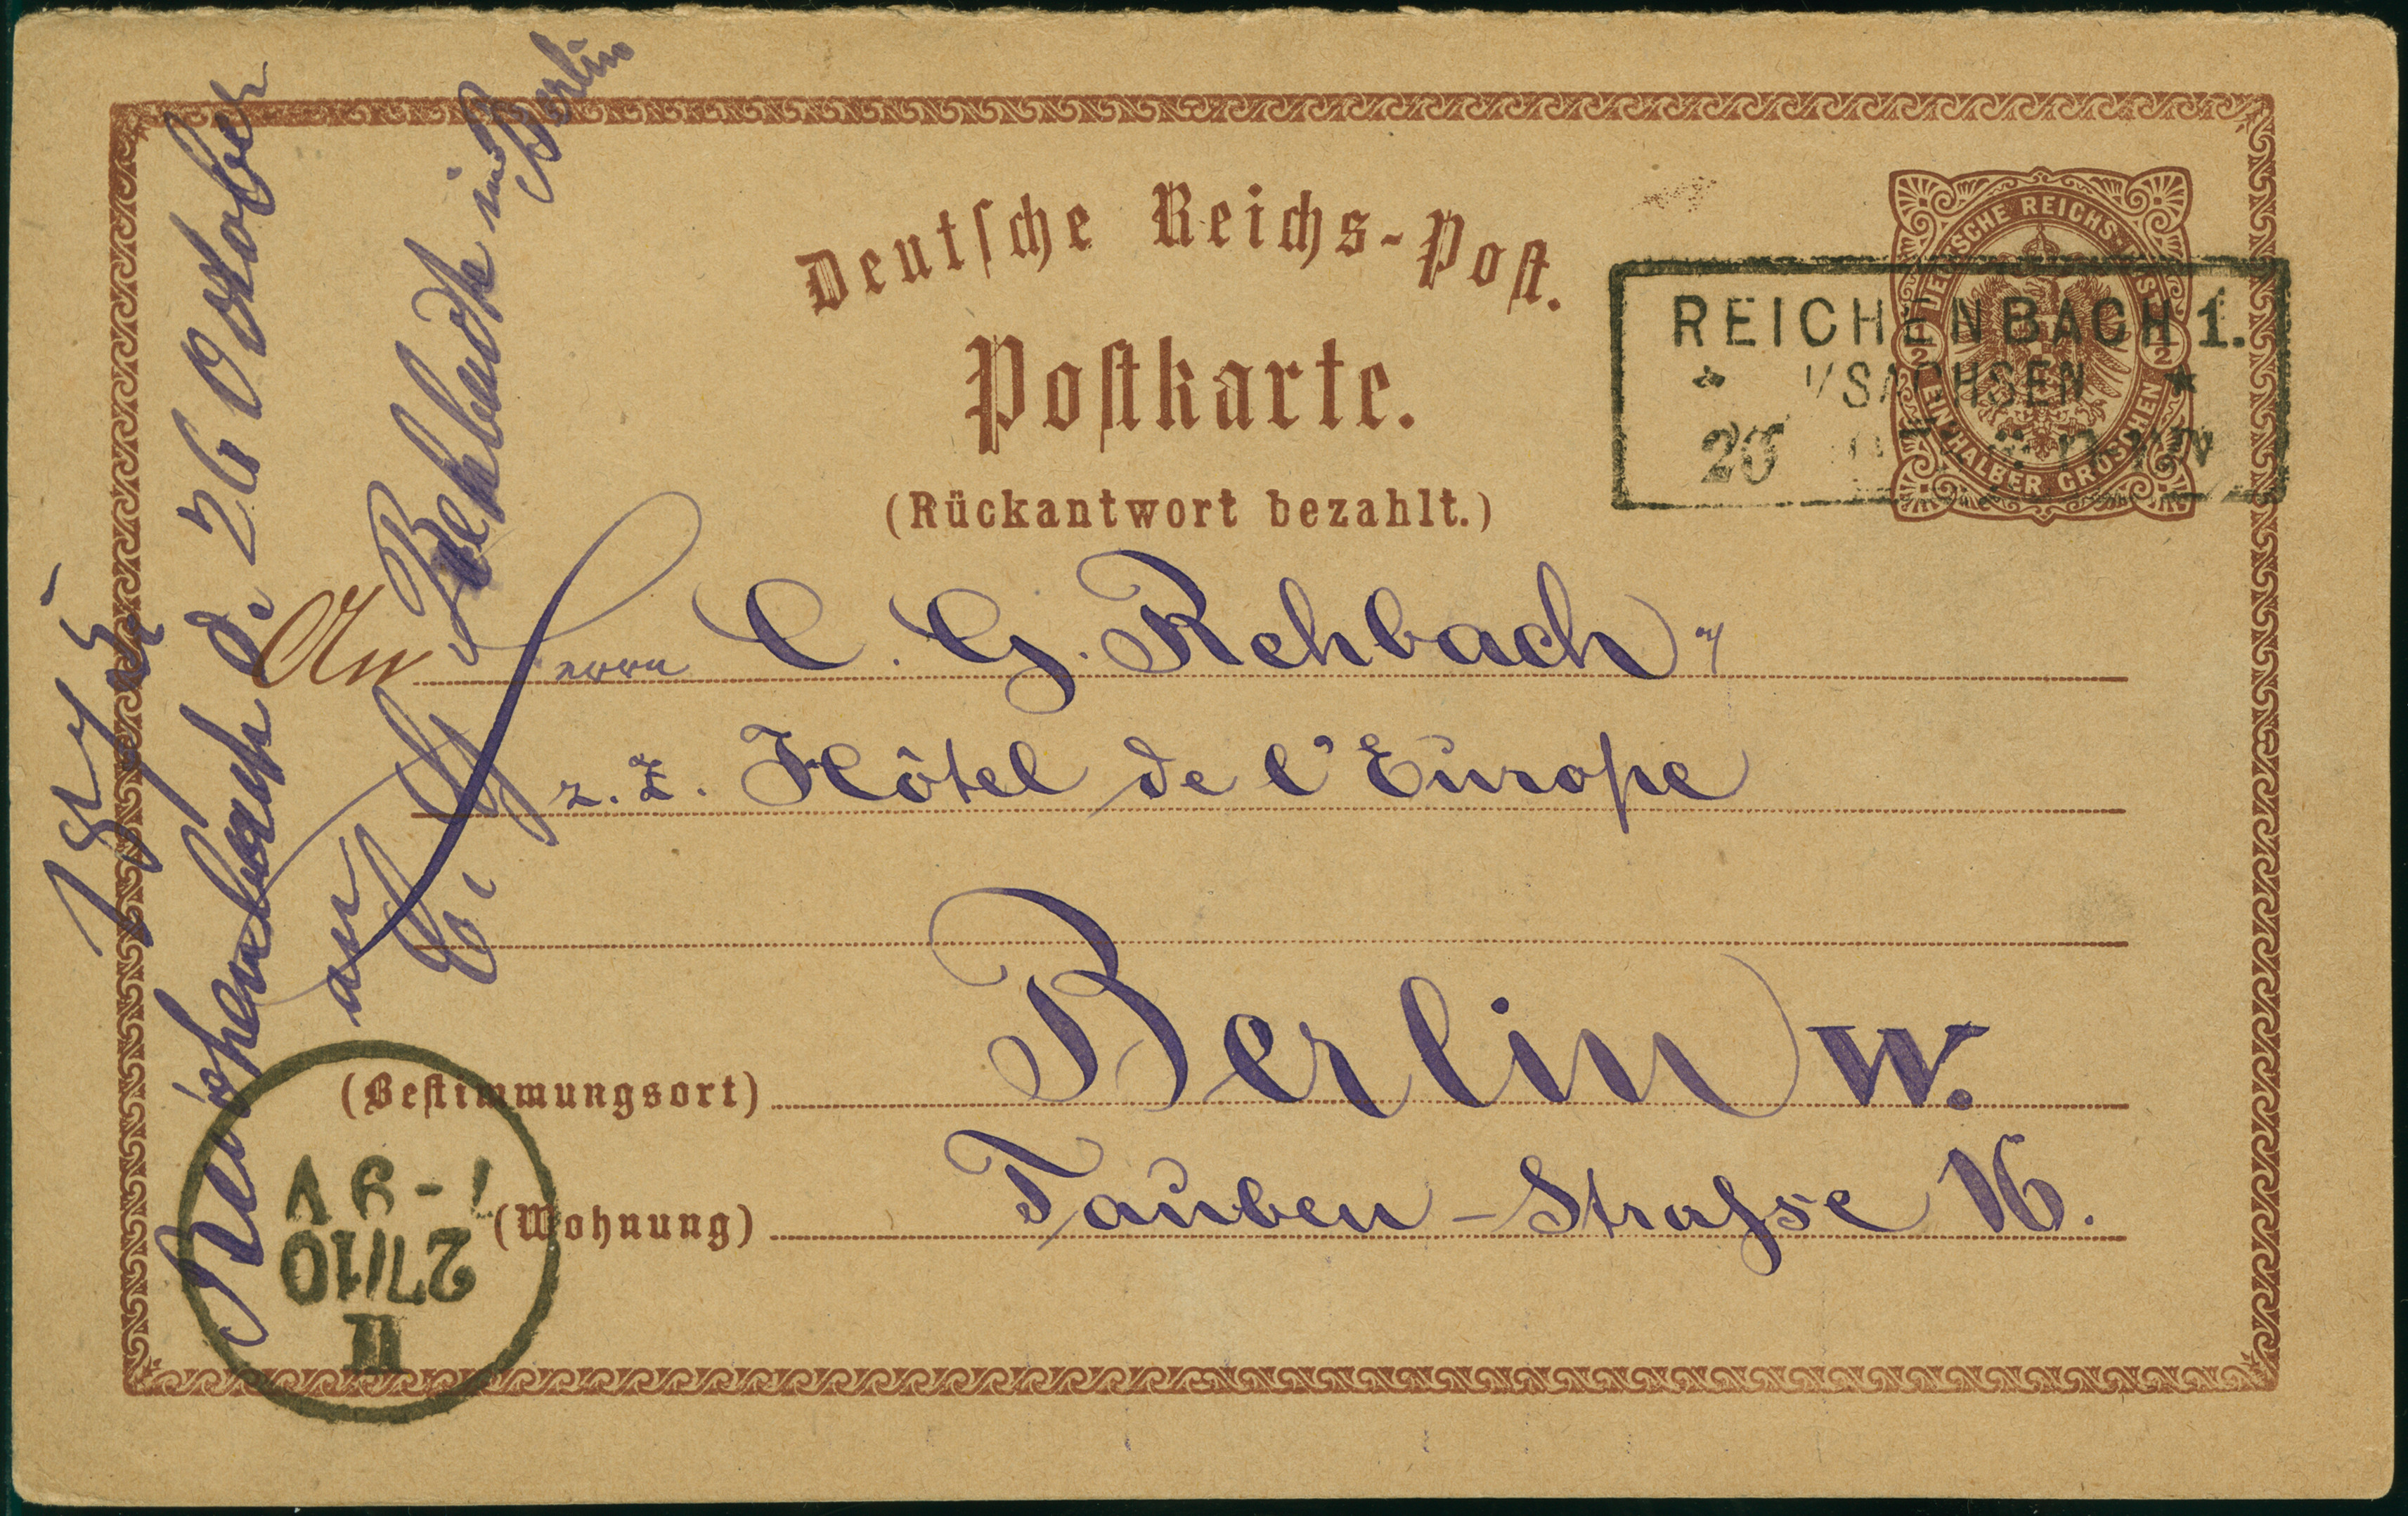 Deutsche Reichs-Post.
Postkarte.
(Rückantwort bezahlt.)
DEUTSCHE REICHS-POST
EIN HALBER GROSCHEN
1/2 1/2
REICHENBACH 1.
I/SACHSEN
26
An Herrn C. G. Rehbach
z. Z. Hôtel de l'Europe
(Bestimmungsort) Berlin W.
(Wohnung) Tauben-Strasse 16.
1875
Reichenbach d. 26 October
an
C. G. Rehbach in Berlin
II
27/10
7-9 V